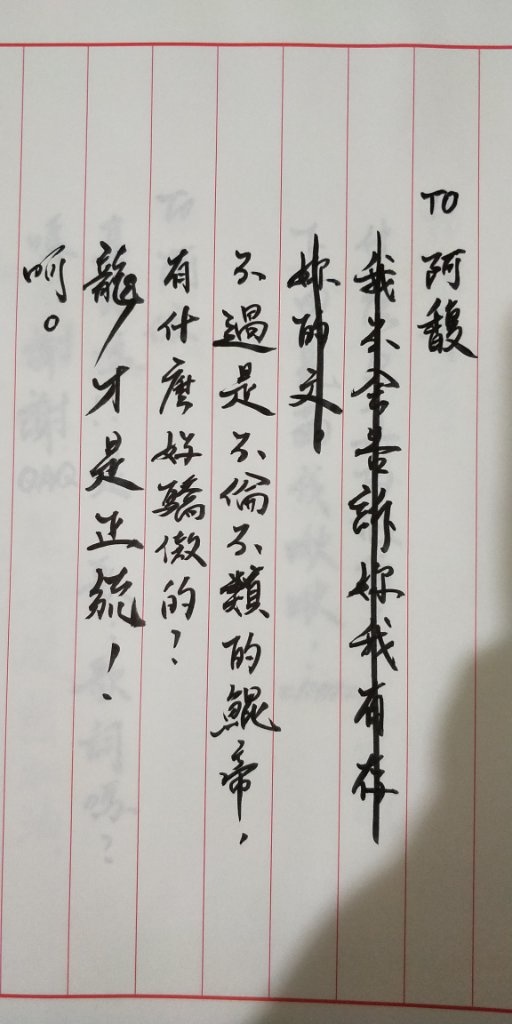 TO 阿馥
我不會告訴妳我有存
妳的文，
不過是不倫不類的鯤帝，
有什麼好驕傲的？
龍才是正統！
呵。